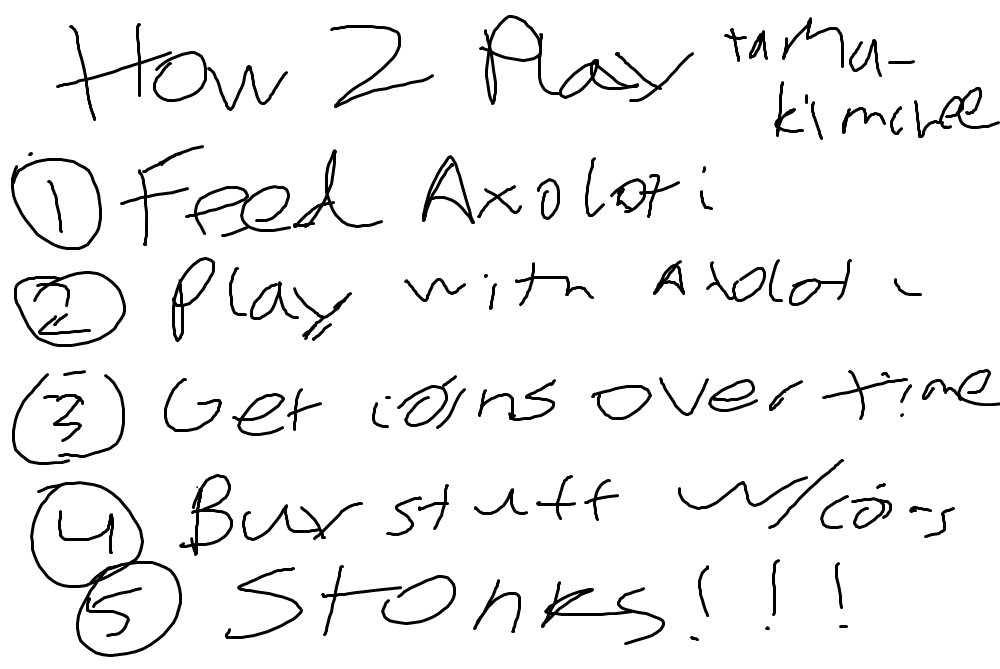 How 2 Play tama-
kimchee
1 Feed Axoloti
2 Play with Axoloti
3 Get coins over time
4 Buy stuff w/coins
5 Stonks!!!